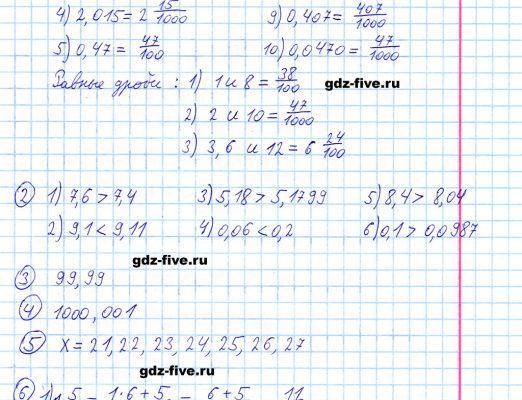 4) 2,015 = 2 15/1000   9) 0,407 = 407/1000
5) 0,47 = 47/100   10) 0,0470 = 47/1000
Равные дроби : 1) 1 и 8 = 38/100
gdz-five.ru
2) 2 и 10 = 47/1000
3) 3, 6 и 12 = 6 24/100
② 1) 7,6 > 7,4   3) 5,18 > 5,1799   5) 8,4 > 8,04
2) 9,1 < 9,11   4) 0,06 < 0,2   6) 0,1 > 0,0987
gdz-five.ru
③ 99,99
④ 1000,001
gdz-five.ru
⑤ x = 21, 22, 23, 24, 25, 26, 27
gdz-five.ru
⑥ 1) 1 5 = 1·6+5 = 6+5 11